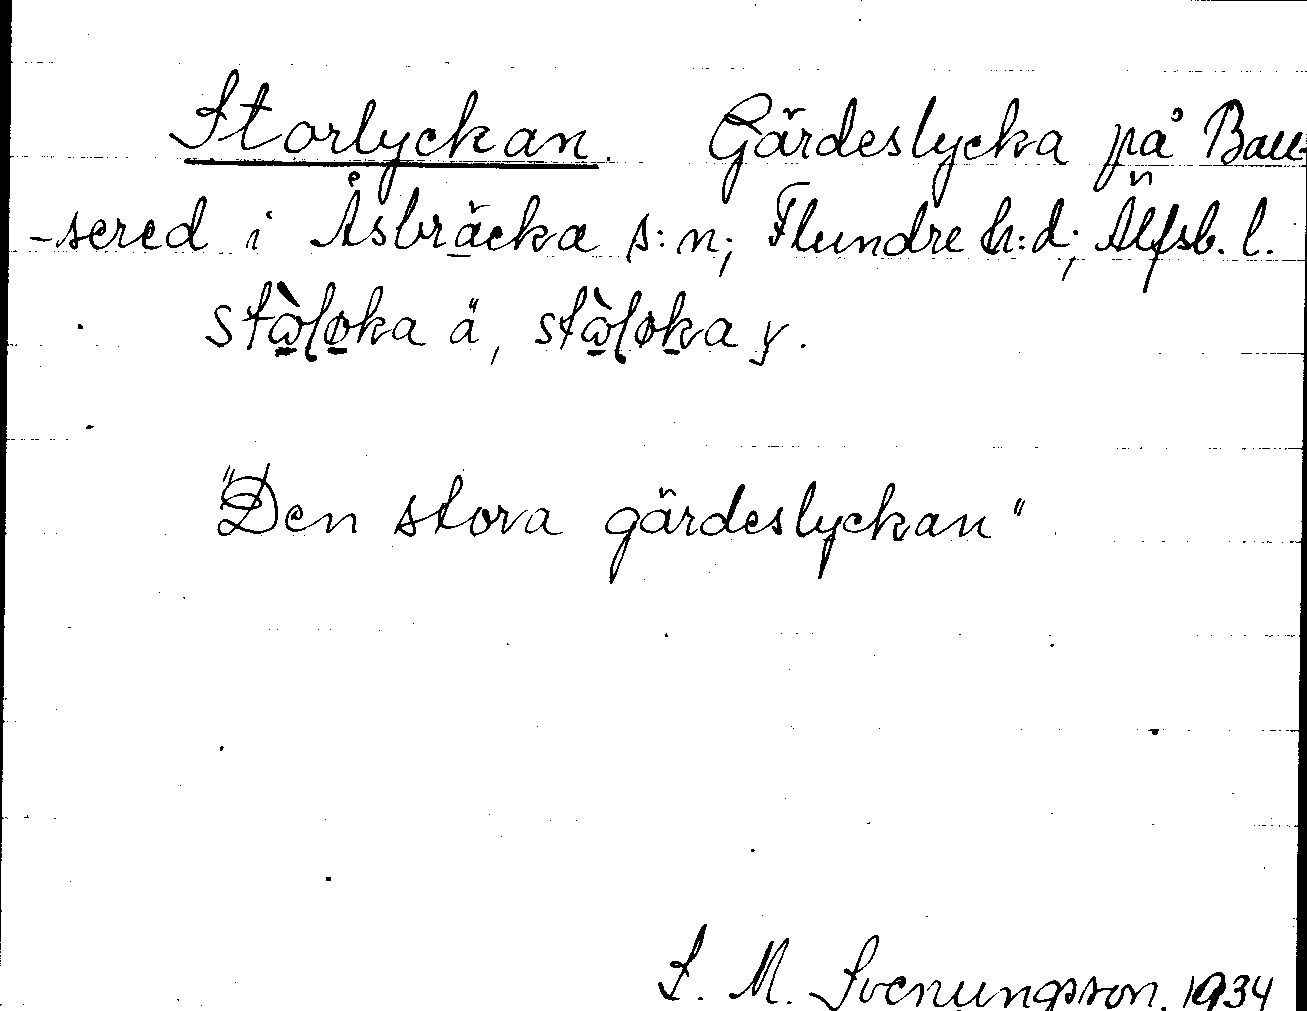 Storlyckan. Gärdeslycka på Bau-
-sered i Åsbräcka s:n; Flundre h:d; Älfsb. l.
"Den stora gärdeslyckan"
S. M. Svenungsson. 1934